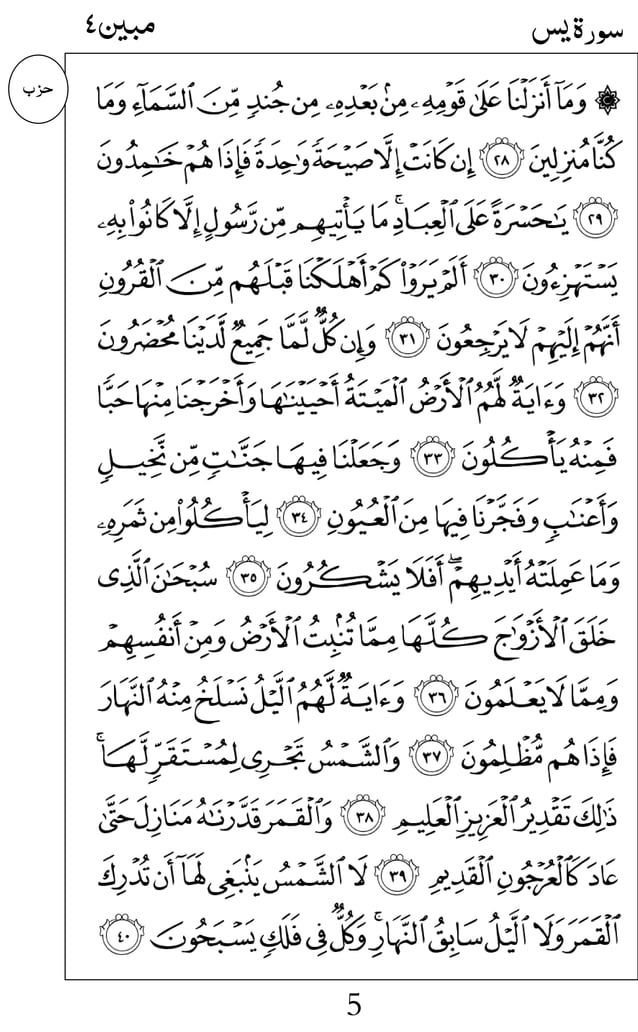 سورة يس
مبين٤
حزب
۞ وَمَآ أَنزَلْنَا عَلَىٰ قَوْمِهِۦ مِنۢ بَعْدِهِۦ مِن جُندٍ مِّنَ ٱلسَّمَآءِ وَمَا
كُنَّا مُنزِلِينَ ٢٨ إِن كَانَتْ إِلَّا صَيْحَةً وَٰحِدَةً فَإِذَا هُمْ خَٰمِدُونَ
٢٩ يَٰحَسْرَةً عَلَى ٱلْعِبَادِ ۚ مَا يَأْتِيهِم مِّن رَّسُولٍ إِلَّا كَانُوا۟ بِهِۦ
يَسْتَهْزِءُونَ ٣٠ أَلَمْ يَرَوْا۟ كَمْ أَهْلَكْنَا قَبْلَهُم مِّنَ ٱلْقُرُونِ
أَنَّهُمْ إِلَيْهِمْ لَا يَرْجِعُونَ ٣١ وَإِن كُلٌّ لَّمَّا جَمِيعٌ لَّدَيْنَا مُحْضَرُونَ
٣٢ وَءَايَةٌ لَّهُمُ ٱلْأَرْضُ ٱلْمَيْتَةُ أَحْيَيْنَٰهَا وَأَخْرَجْنَا مِنْهَا حَبًّا
فَمِنْهُ يَأْكُلُونَ ٣٣ وَجَعَلْنَا فِيهَا جَنَّٰتٍ مِّن نَّخِيلٍ
وَأَعْنَٰبٍ وَفَجَّرْنَا فِيهَا مِنَ ٱلْعُيُونِ ٣٤ لِيَأْكُلُوا۟ مِن ثَمَرِهِۦ
وَمَا عَمِلَتْهُ أَيْدِيهِمْ ۖ أَفَلَا يَشْكُرُونَ ٣٥ سُبْحَٰنَ ٱلَّذِى
خَلَقَ ٱلْأَزْوَٰجَ كُلَّهَا مِمَّا تُنۢبِتُ ٱلْأَرْضُ وَمِنْ أَنفُسِهِمْ
وَمِمَّا لَا يَعْلَمُونَ ٣٦ وَءَايَةٌ لَّهُمُ ٱلَّيْلُ نَسْلَخُ مِنْهُ ٱلنَّهَارَ
فَإِذَا هُم مُّظْلِمُونَ ٣٧ وَٱلشَّمْسُ تَجْرِى لِمُسْتَقَرٍّ لَّهَا ۚ
ذَٰلِكَ تَقْدِيرُ ٱلْعَزِيزِ ٱلْعَلِيمِ ٣٨ وَٱلْقَمَرَ قَدَّرْنَٰهُ مَنَازِلَ حَتَّىٰ
عَادَ كَٱلْعُرْجُونِ ٱلْقَدِيمِ ٣٩ لَا ٱلشَّمْسُ يَنۢبَغِى لَهَآ أَن تُدْرِكَ
ٱلْقَمَرَ وَلَا ٱلَّيْلُ سَابِقُ ٱلنَّهَارِ ۚ وَكُلٌّ فِى فَلَكٍ يَسْبَحُونَ ٤٠
5